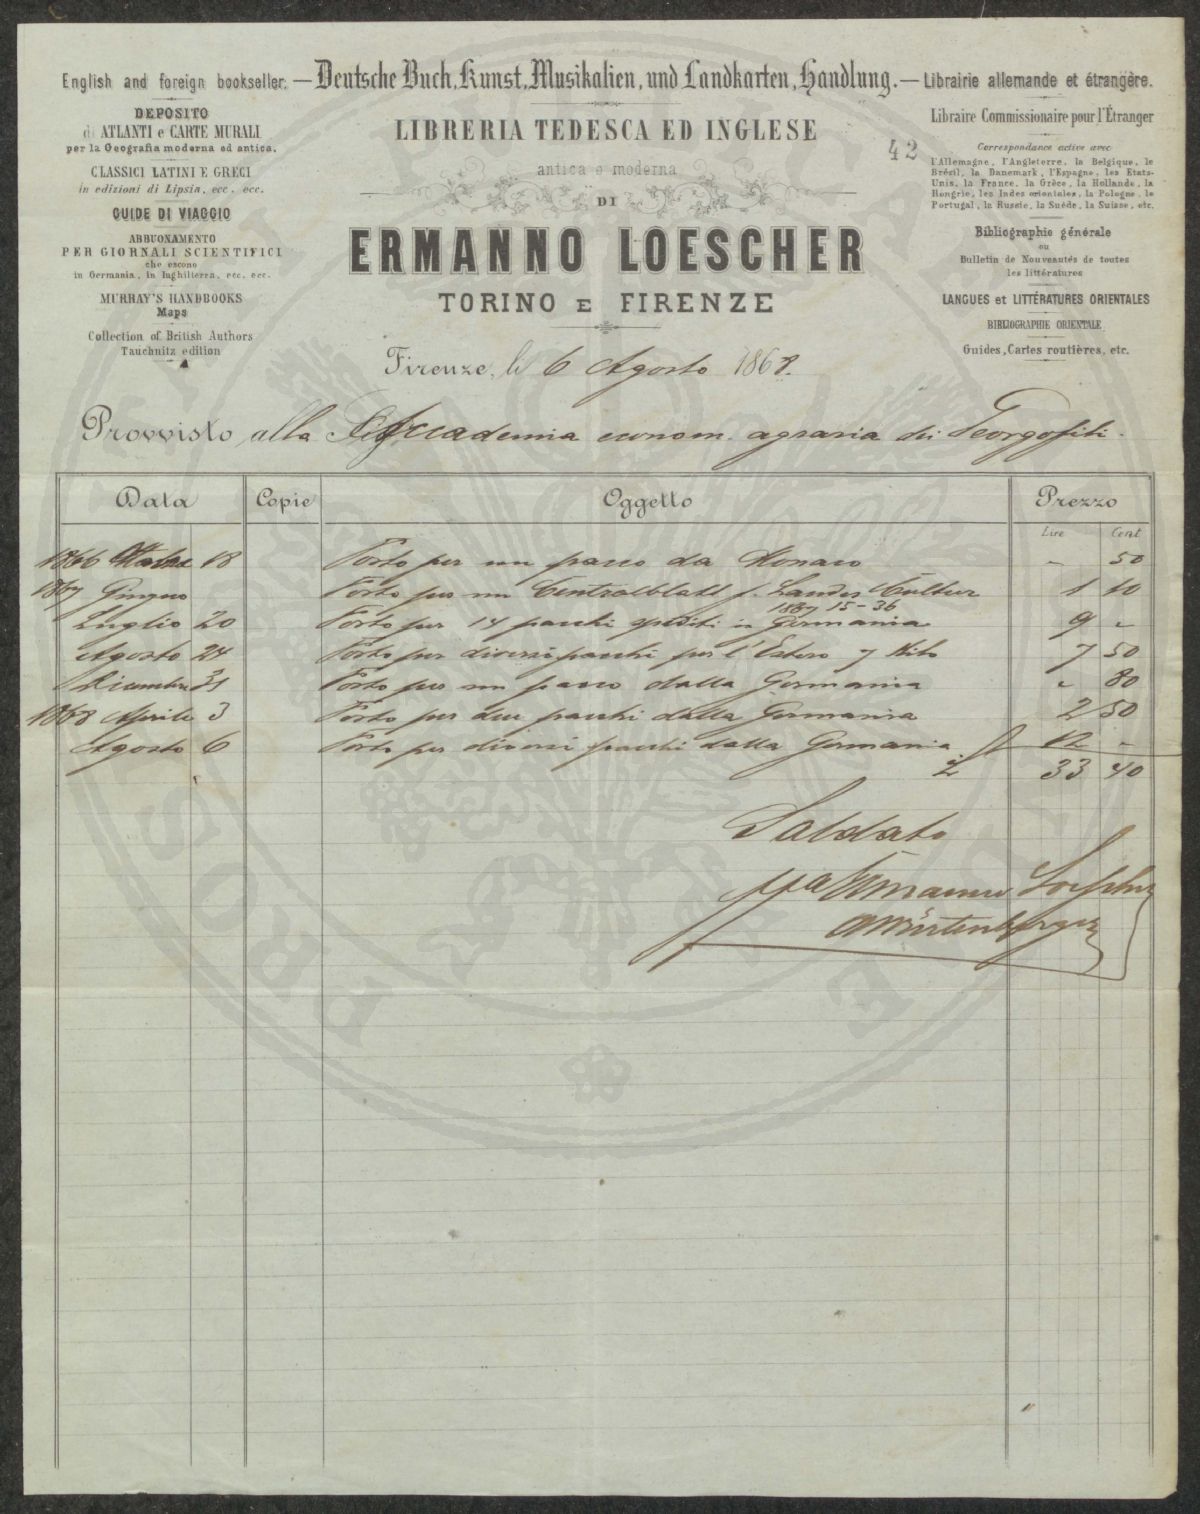 English and foreign bookseller. — Deutsche Buch, Kunst, Musikalien, und Landkarten, Handlung. — Librairie allemande et étrangère.
DEPOSITO
di ATLANTI e CARTE MURALI
per la Geografia moderna ed antica.
CLASSICI LATINI E GRECI
in edizioni di Lipsia, ecc. ecc.
GUIDE DI VIAGGIO
ABBUONAMENTO
PER GIORNALI SCIENTIFICI
che escono
in Germania, in Inghilterra, ecc. ecc.
MURRAY'S HANDBOOKS
Maps
Collection of British Authors
Tauchnitz edition
LIBRERIA TEDESCA ED INGLESE
antica e moderna
DI
ERMANNO LOESCHER
TORINO E FIRENZE
42
Libraire Commissionaire pour l'Étranger
Correspondance active avec
l'Allemagne, l'Angleterre, la Belgique, le
Brésil, la Danemark, l'Espagne, les Etats-
Unis, la France, la Grèce, la Hollande, la
Hongrie, les Indes orientales, la Pologne, le
Portugal, la Russie, la Suède, la Suisse, etc.
Bibliographie générale
ou
Bulletin de Nouveautés de toutes
les littératures
LANGUES et LITTÉRATURES ORIENTALES
BIBLIOGRAPHIE ORIENTALE
Guides, Cartes routières, etc.
Firenze, li 6 Agosto 1868.
Provvisto alla Accademia econom. agraria dei Georgofili.
Data Copie Oggetto Prezzo
Lire Cent
1866 Ottobre 18 Porto per un pacco da Monaco - 50
1867 Giugno Porto per un Centralblatt f. Landes Cultur 1 10
1867 15-36
Luglio 20 Porto per 14 pacchi spediti in Germania 9 -
Agosto 24 Porto per diversi pacchi per l'Estero 7 Kilo 7 50
Dicembre 31 Porto per un pacco dalla Germania - 80
1868 Aprile 3 Porto per due pacchi dalla Germania 2 50
Agosto 6 Porto per diversi pacchi dalla Germania 12 -
33 40
Saldato
Ermanno Loescher
Würtenberger